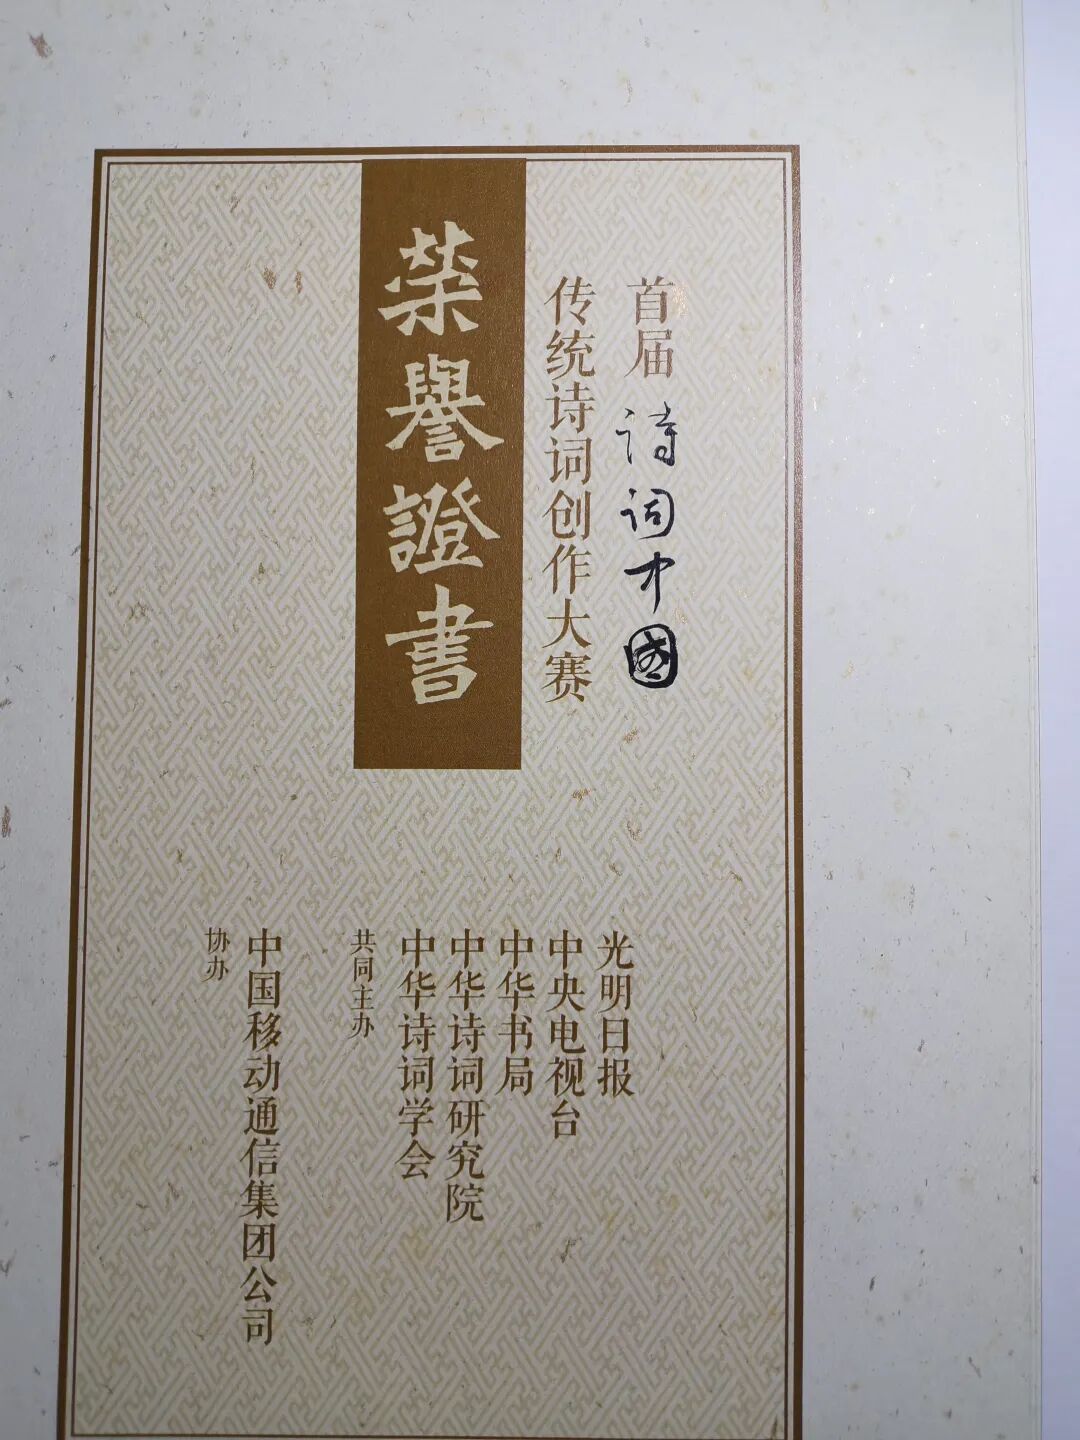 首届 诗词中國
传统诗词创作大赛
荣譽證書
光明日报
中央电视台
中华书局
中华诗词研究院
中华诗词学会
共同主办
中国移动通信集团公司
协办